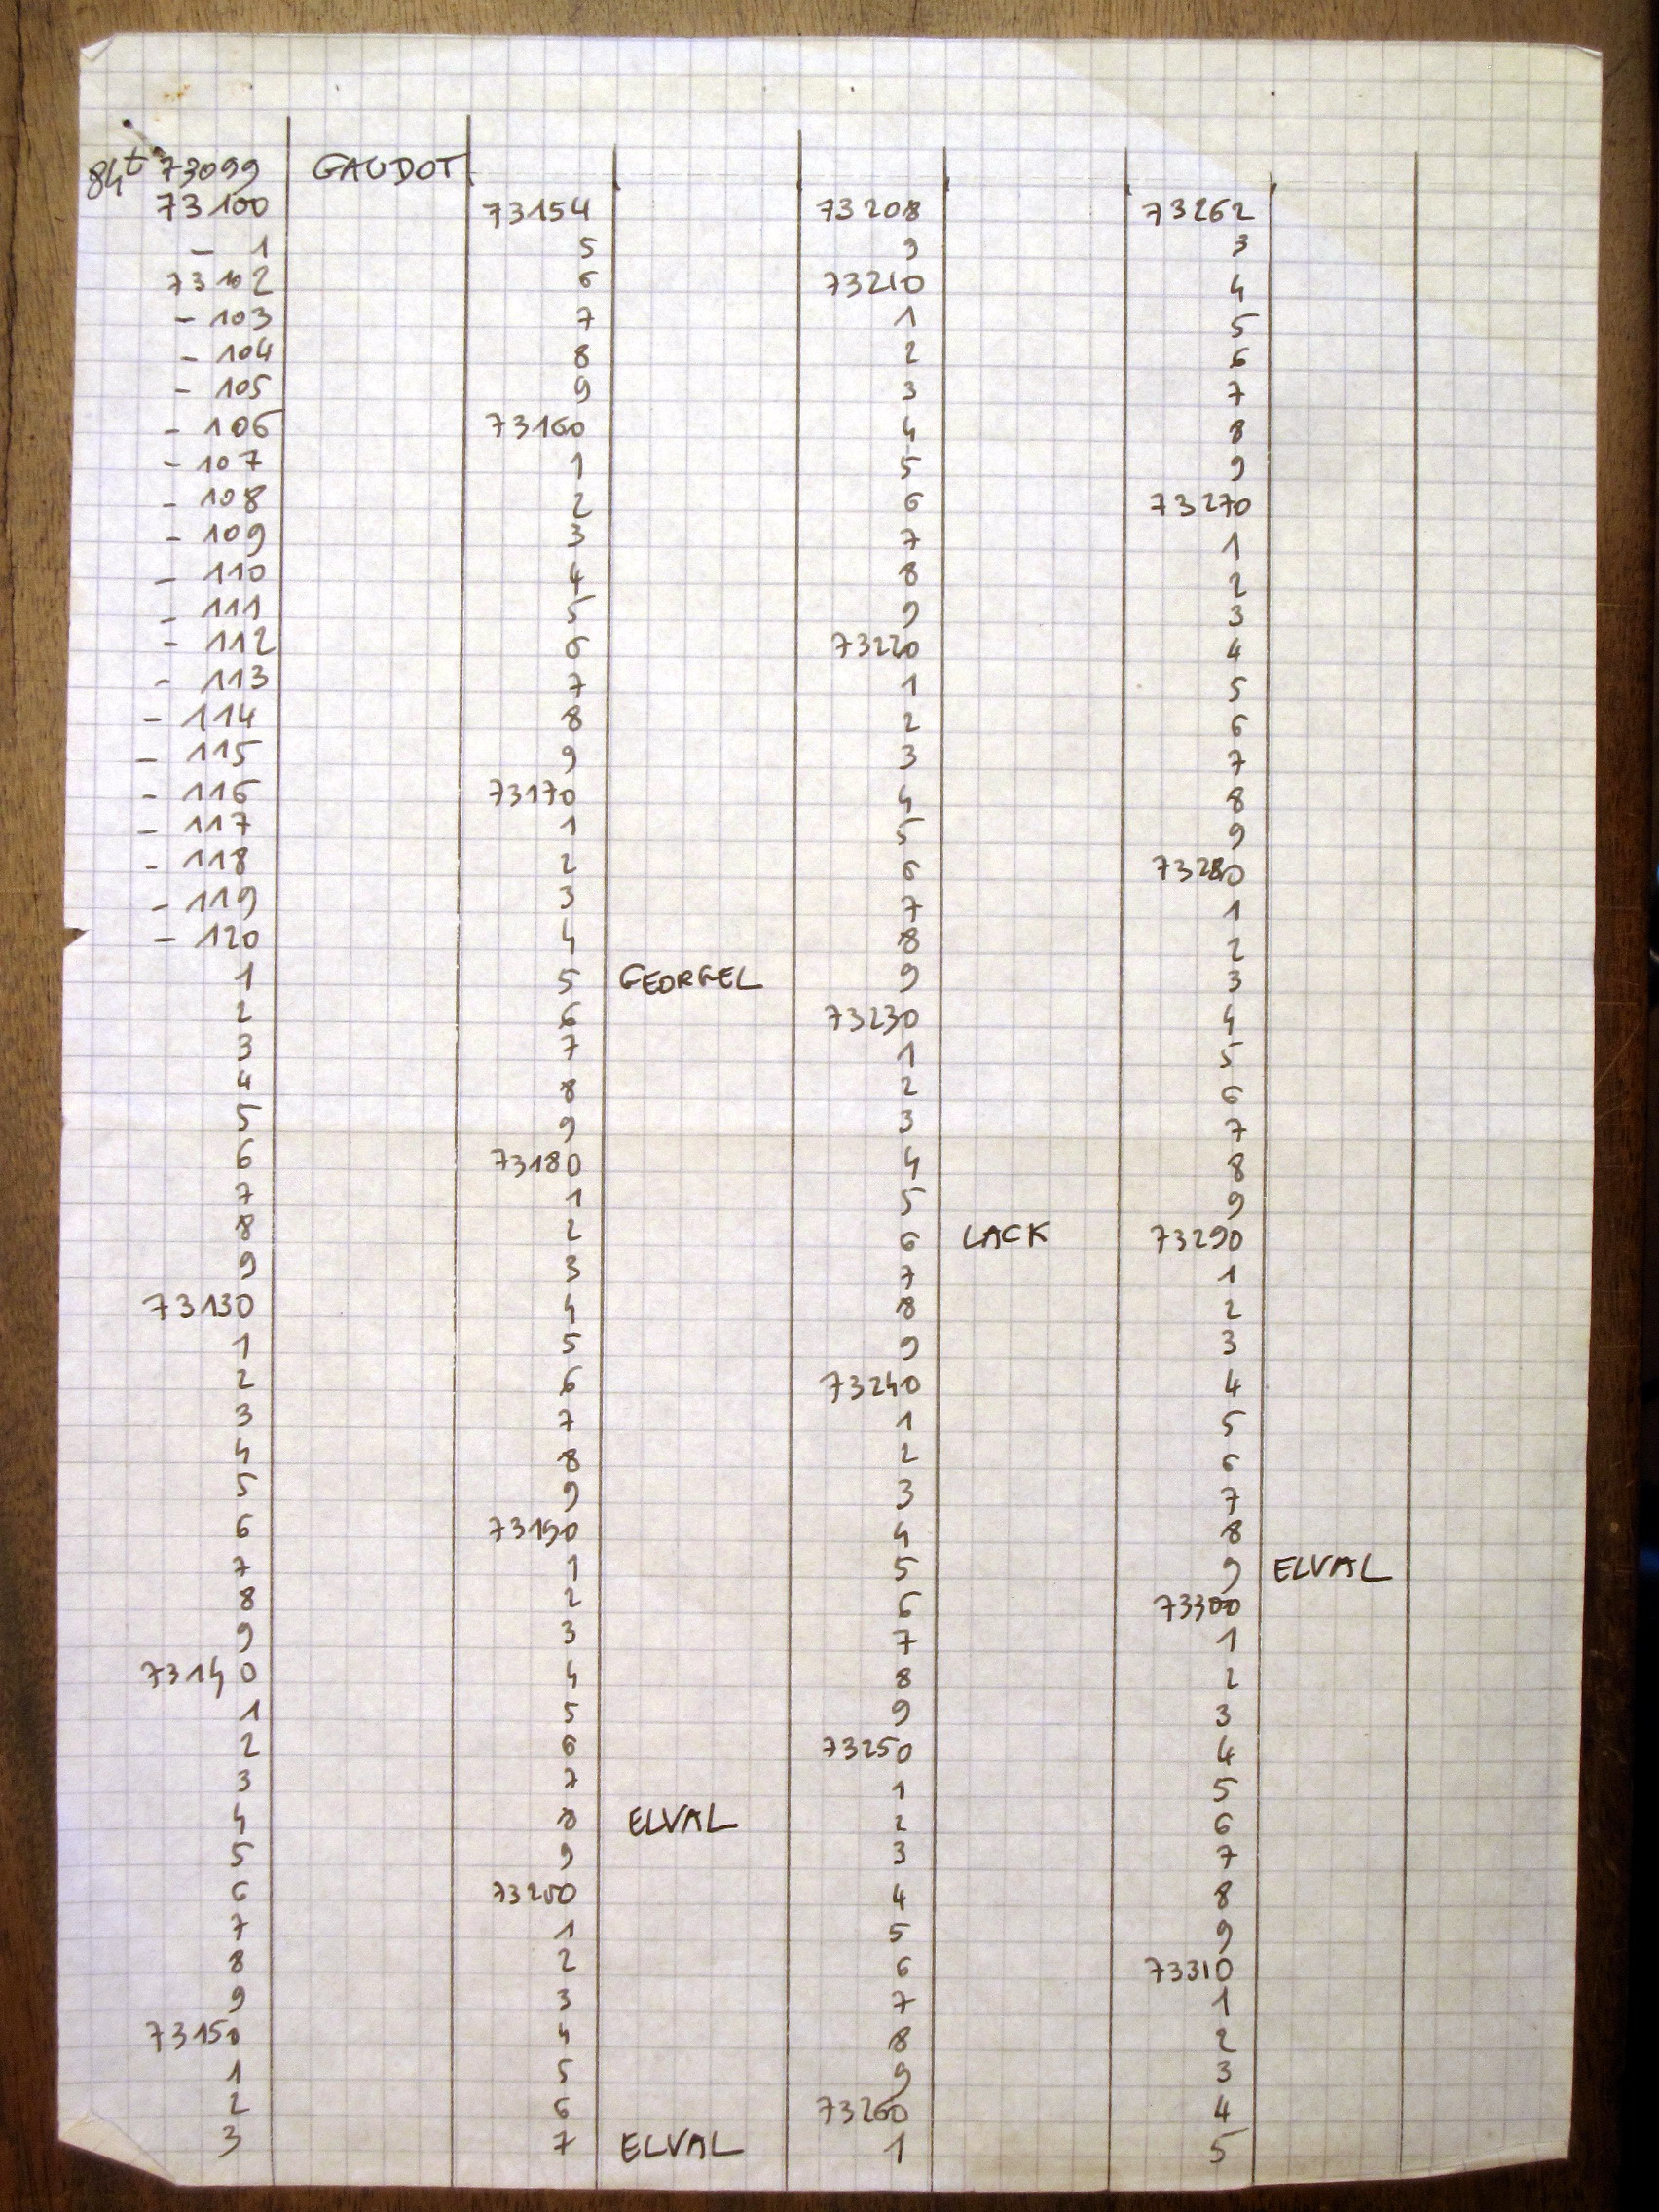 84t 73099 GAUDOT
73100
- 1
73102
- 103
- 104
- 105
- 106
- 107
- 108
- 109
- 110
- 111
- 112
- 113
- 114
- 115
- 116
- 117
- 118
- 119
- 120
1
2
3
4
5
6
7
8
9
73130
1
2
3
4
5
6
7
8
9
73140
1
2
3
4
5
6
7
8
9
73150
1
2
3
73154
5
6
7
8
9
73160
1
2
3
4
5
6
7
8
9
73170
1
2
3
4
5 GEORGEL
6
7
8
9
73180
1
2
3
4
5
6
7
8
9
73190
1
2
3
4
5
6
7
8 ELVAL
9
73200
1
2
3
4
5
6
7 ELVAL
73208
9
73210
1
2
3
4
5
6
7
8
9
73220
1
2
3
4
5
6
7
8
9
73230
1
2
3
4
5
6 LACK
7
8
9
73240
1
2
3
4
5
6
7
8
9
73250
1
2
3
4
5
6
7
8
9
73260
1
73262
3
4
5
6
7
8
9
73270
1
2
3
4
5
6
7
8
9
73280
1
2
3
4
5
6
7
8
9
73290
1
2
3
4
5
6
7
8
9 ELVAL
73300
1
2
3
4
5
6
7
8
9
73310
1
2
3
4
5